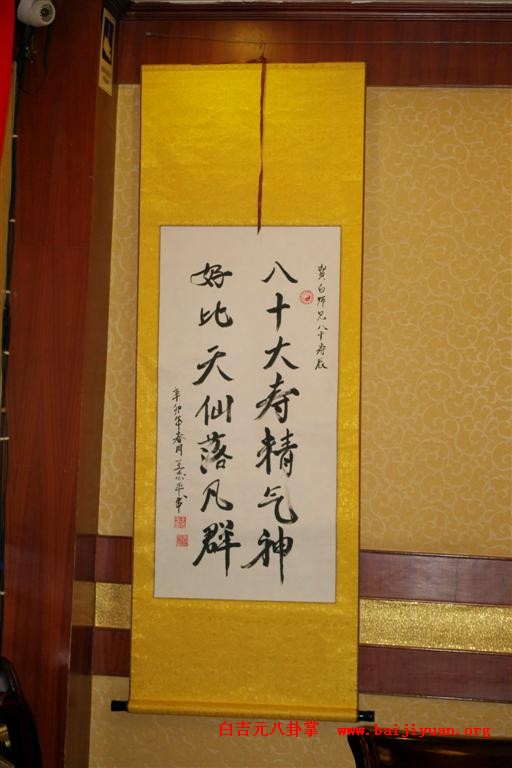 贺白师兄八十寿辰
八十大寿精气神
好比天仙落凡群
辛卯年春月
白吉元八卦掌 www.baijiyuan.org